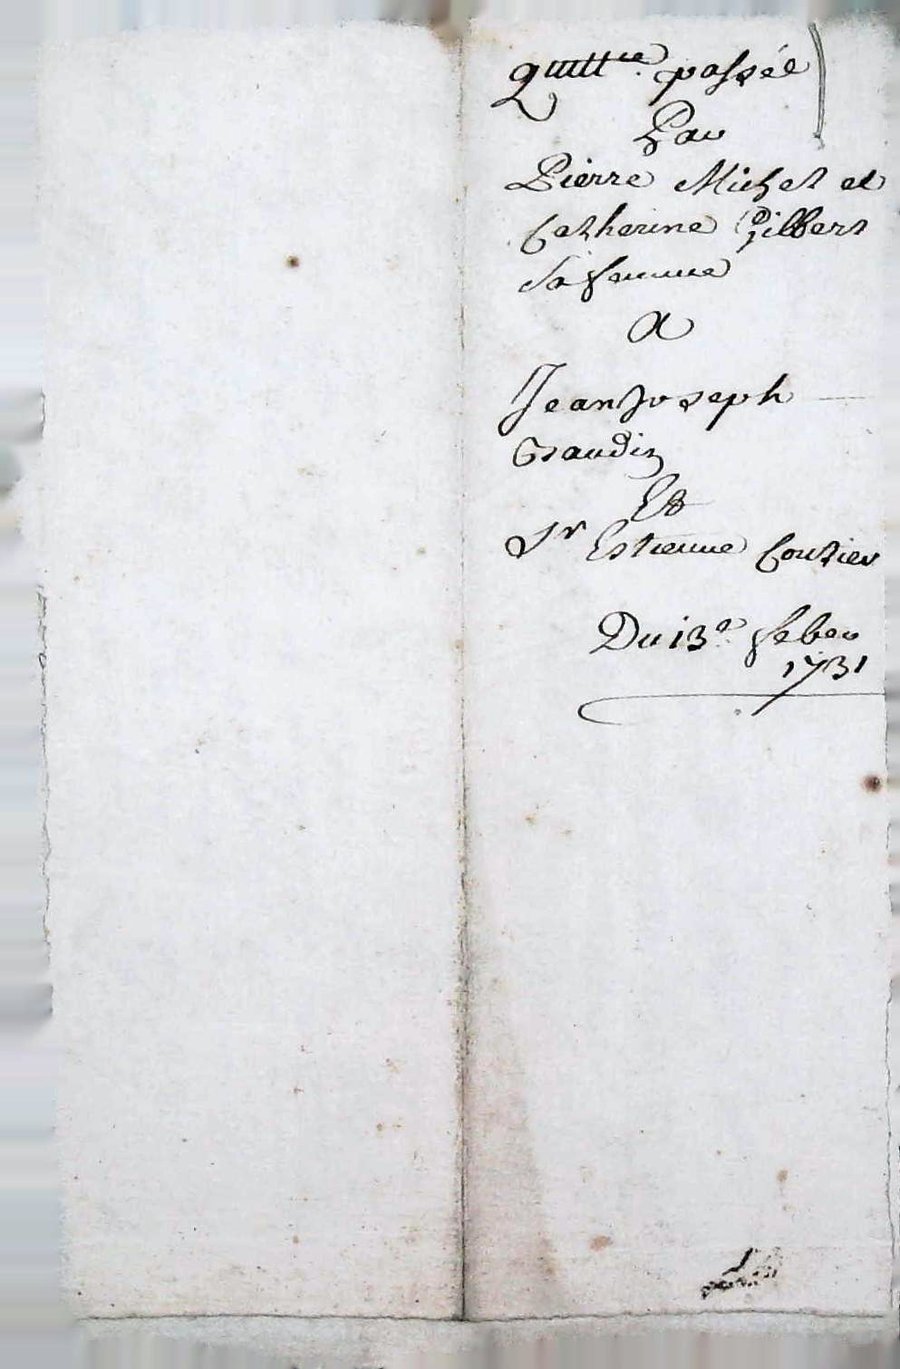 Quitt.ce passée
Par
Pierre Michet et
Catherine Gilbert
Sa femme
A
Jean Joseph
Graudin
Et
Sr Estienne Coutier
Du 13e feber
1731